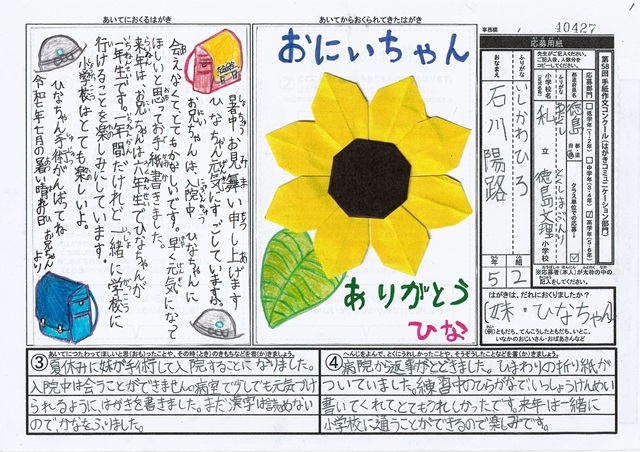 あいてにおくるはがき
暑中お見舞い申し上げます
ひなちゃん元気にすごしていますか。
お兄ちゃんは入院中 ひなちゃんに
会えなくて、とてもさみしいです。早く元気になって
ほしいと思ってお手紙を書きました。
来年は、お兄ちゃんは六年生でひなちゃんが
一年生です。一年間だけれど一緒に学校に
行けることを楽しみにしています。
小学校はとても楽しいよ。
ひなちゃん手術がんばってね
令和七年七月の暑い晴れの日
お兄ちゃん
より
あいてからおくられてきたはがき
おにいちゃん
ありがとう
ひな
事務局
40427
応募用紙
先生がご記入ください。
ご記入後、人数分を
コピーしてください。
第58回 手紙作文コンクール〈はがきコミュニケーション部門〉
応募部門
低学年(1・2年)
中学年(3・4年)
高学年(5・6年)
クラス単位での応募
都道府県名
徳島
都道府県
ふりがな
とくしまぶんり
小学校名
私立徳島文理小学校
ふりがな
いしかわひろ
おなまえ
石川陽路
5年
2組
※応募者(本人)が太枠の中の
記入をしてください。
はがきは、だれにおくりましたか?
妹・ひなちゃん
(例)ともだち、てんこうしたともだち、いとこ、
いなかのおじいさん・おばあさんなど
③
あいてにつたわってほしいと思(おも)ったことや、その時(とき)のきもちなどを書(か)きましょう。
夏休みに妹が手術して入院することになりました。
入院中は会うことができません。病室で少しでも元気づけ
られるように、はがきを書きました。まだ漢字は読めない
ので、かなをふりました。
④
へんじをよんで、とくにうれしかったことや、そうぞうしたことなどを書(か)きましょう。
病院から返事がとどきました。ひまわりの折り紙が
ついていました。練習中のひらがなで、いっしょうけんめい
書いてくれて、とてもうれしかったです。来年は一緒に
小学校に通うことができるので楽しみです。